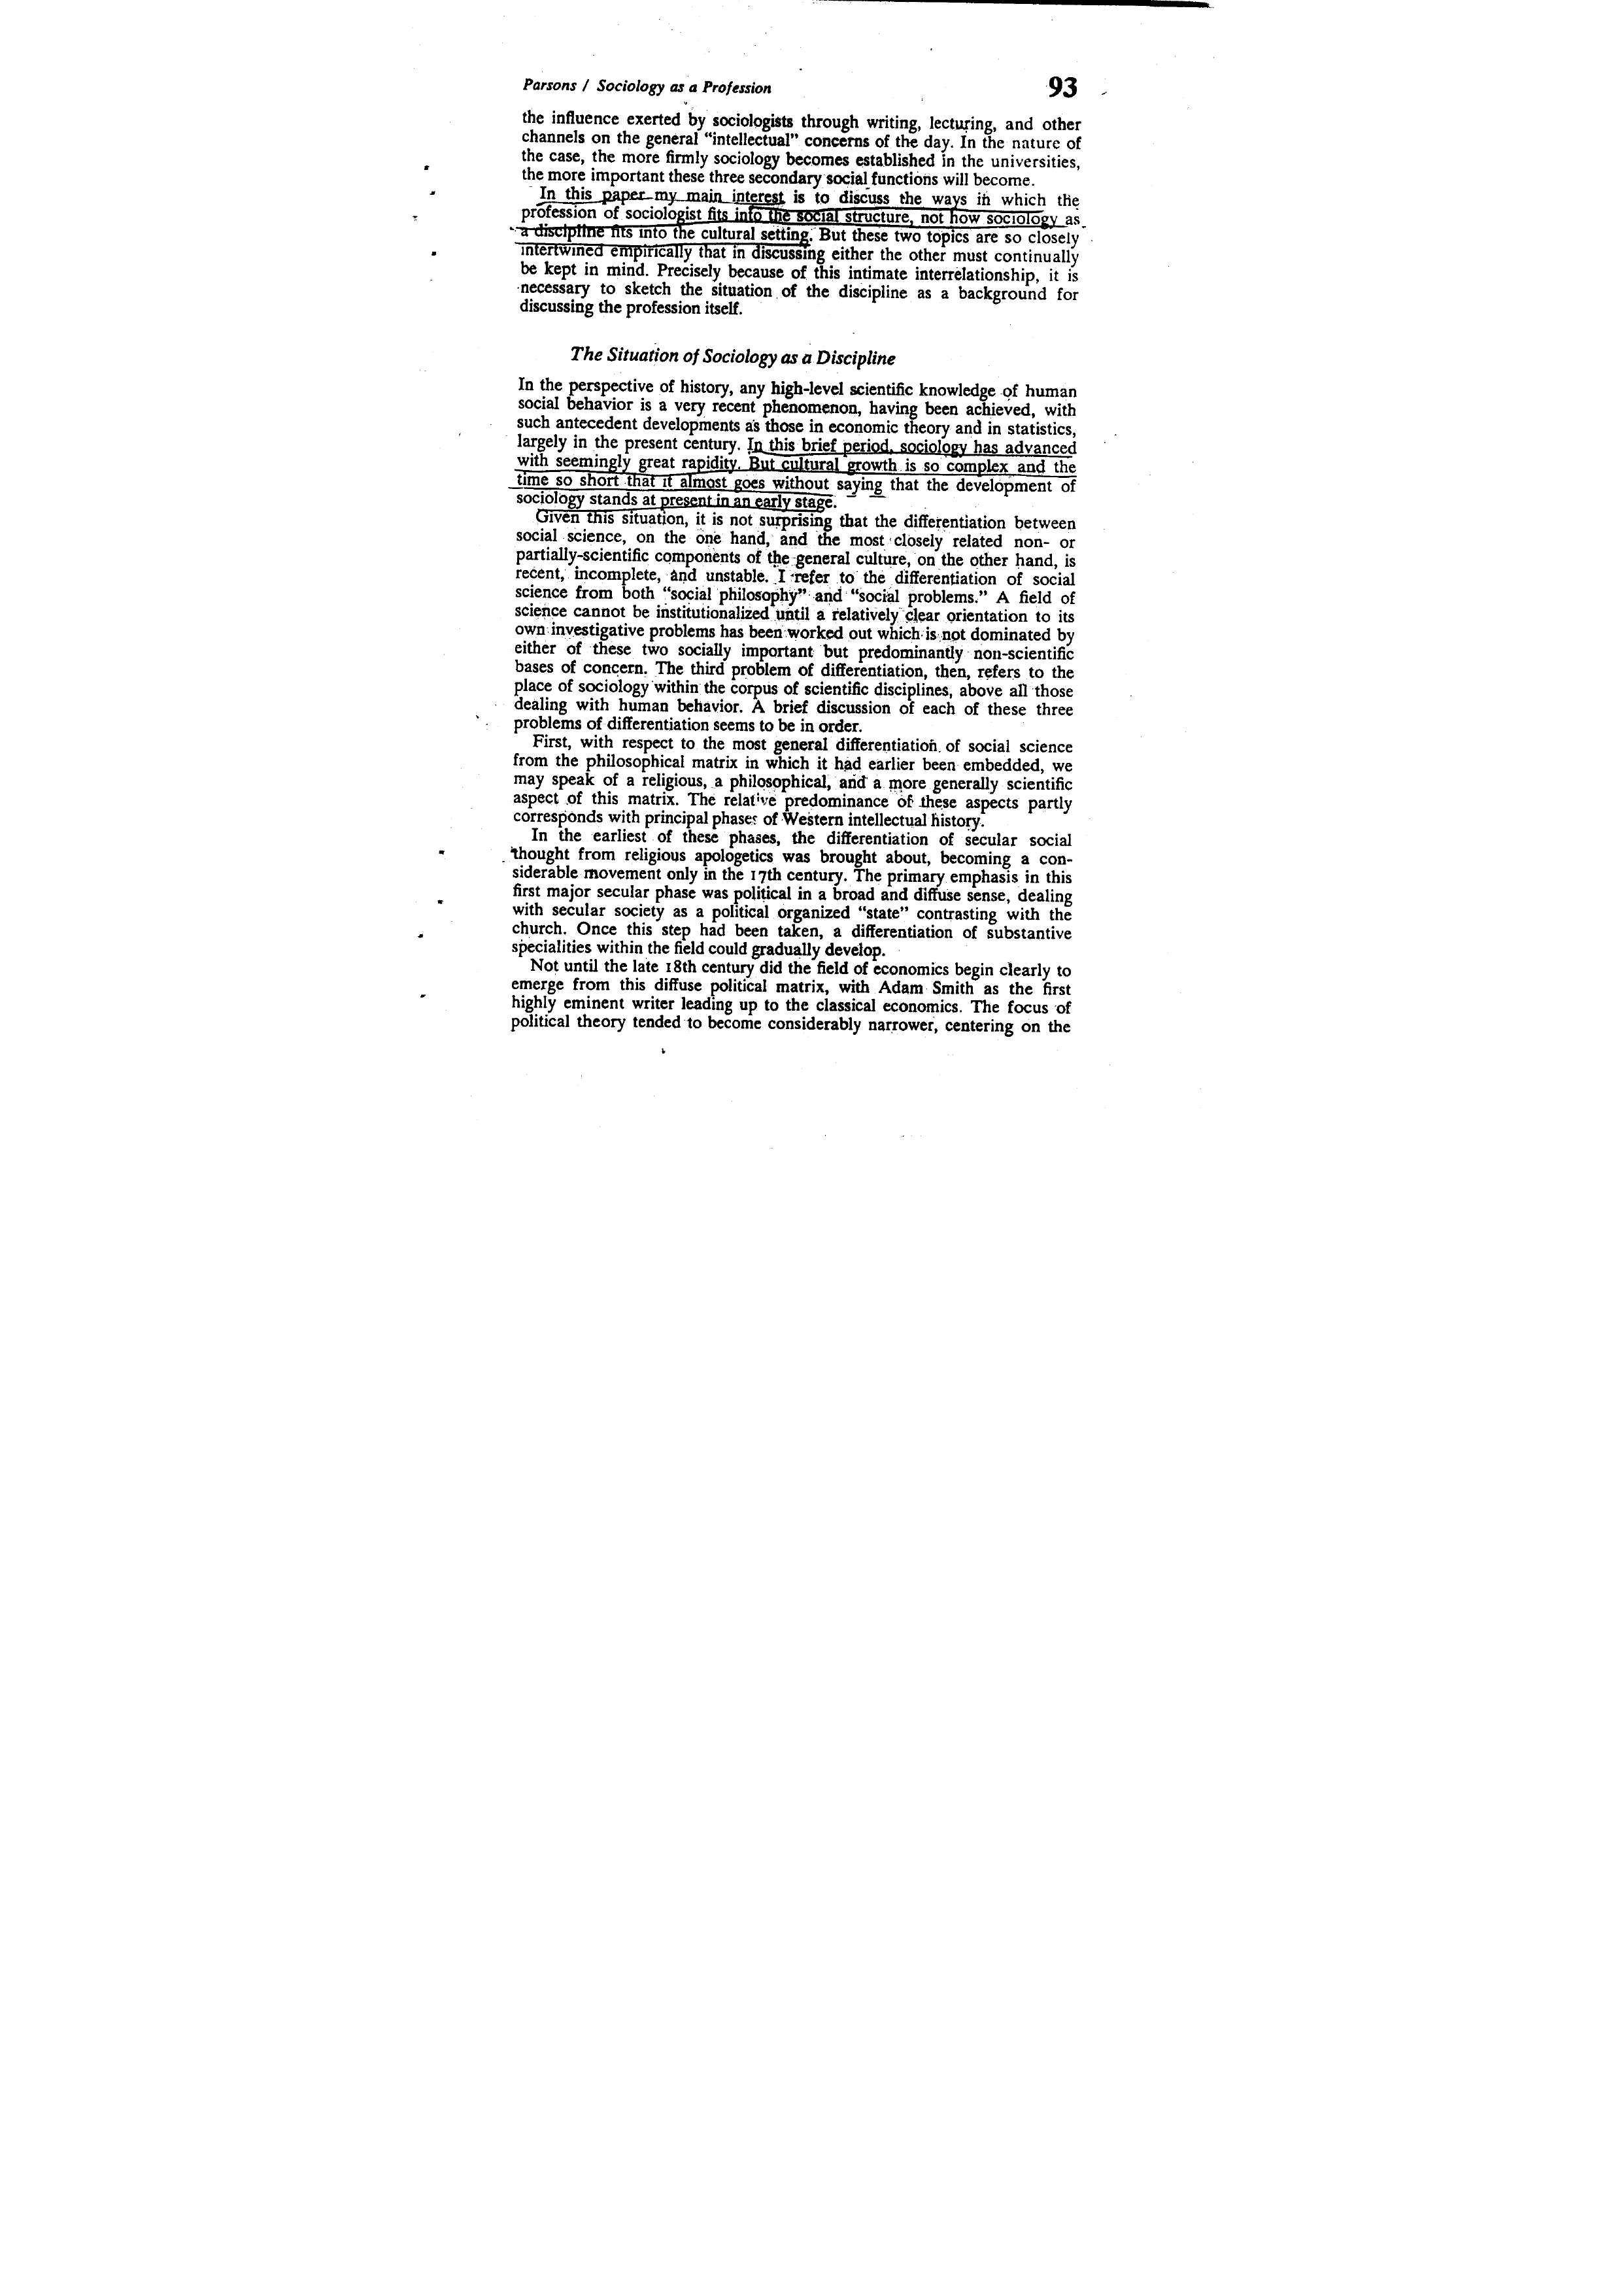 Parsons / Sociology as a Profession 93
the influence exerted by sociologists through writing, lecturing, and other
channels on the general “intellectual” concerns of the day. In the nature of
the case, the more firmly sociology becomes established in the universities,
the more important these three secondary social functions will become.
In this paper my main interest is to discuss the ways in which the
profession of sociologist fits into the social structure, not how sociology as
a discipline fits into the cultural setting. But these two topics are so closely
intertwined empirically that in discussing either the other must continually
be kept in mind. Precisely because of this intimate interrelationship, it is
necessary to sketch the situation of the discipline as a background for
discussing the profession itself.
The Situation of Sociology as a Discipline
In the perspective of history, any high-level scientific knowledge of human
social behavior is a very recent phenomenon, having been achieved, with
such antecedent developments as those in economic theory and in statistics,
largely in the present century. In this brief period, sociology has advanced
with seemingly great rapidity. But cultural growth is so complex and the
time so short that it almost goes without saying that the development of
sociology stands at present in an early stage.
Given this situation, it is not surprising that the differentiation between
social science, on the one hand, and the most closely related non- or
partially-scientific components of the general culture, on the other hand, is
recent, incomplete, and unstable. I refer to the differentiation of social
science from both “social philosophy” and “social problems.” A field of
science cannot be institutionalized until a relatively clear orientation to its
own investigative problems has been worked out which is not dominated by
either of these two socially important but predominantly non-scientific
bases of concern. The third problem of differentiation, then, refers to the
place of sociology within the corpus of scientific disciplines, above all those
dealing with human behavior. A brief discussion of each of these three
problems of differentiation seems to be in order.
First, with respect to the most general differentiation of social science
from the philosophical matrix in which it had earlier been embedded, we
may speak of a religious, a philosophical, and a more generally scientific
aspect of this matrix. The relative predominance of these aspects partly
corresponds with principal phases of Western intellectual history.
In the earliest of these phases, the differentiation of secular social
thought from religious apologetics was brought about, becoming a con-
siderable movement only in the 17th century. The primary emphasis in this
first major secular phase was political in a broad and diffuse sense, dealing
with secular society as a political organized “state” contrasting with the
church. Once this step had been taken, a differentiation of substantive
specialities within the field could gradually develop.
Not until the late 18th century did the field of economics begin clearly to
emerge from this diffuse political matrix, with Adam Smith as the first
highly eminent writer leading up to the classical economics. The focus of
political theory tended to become considerably narrower, centering on the